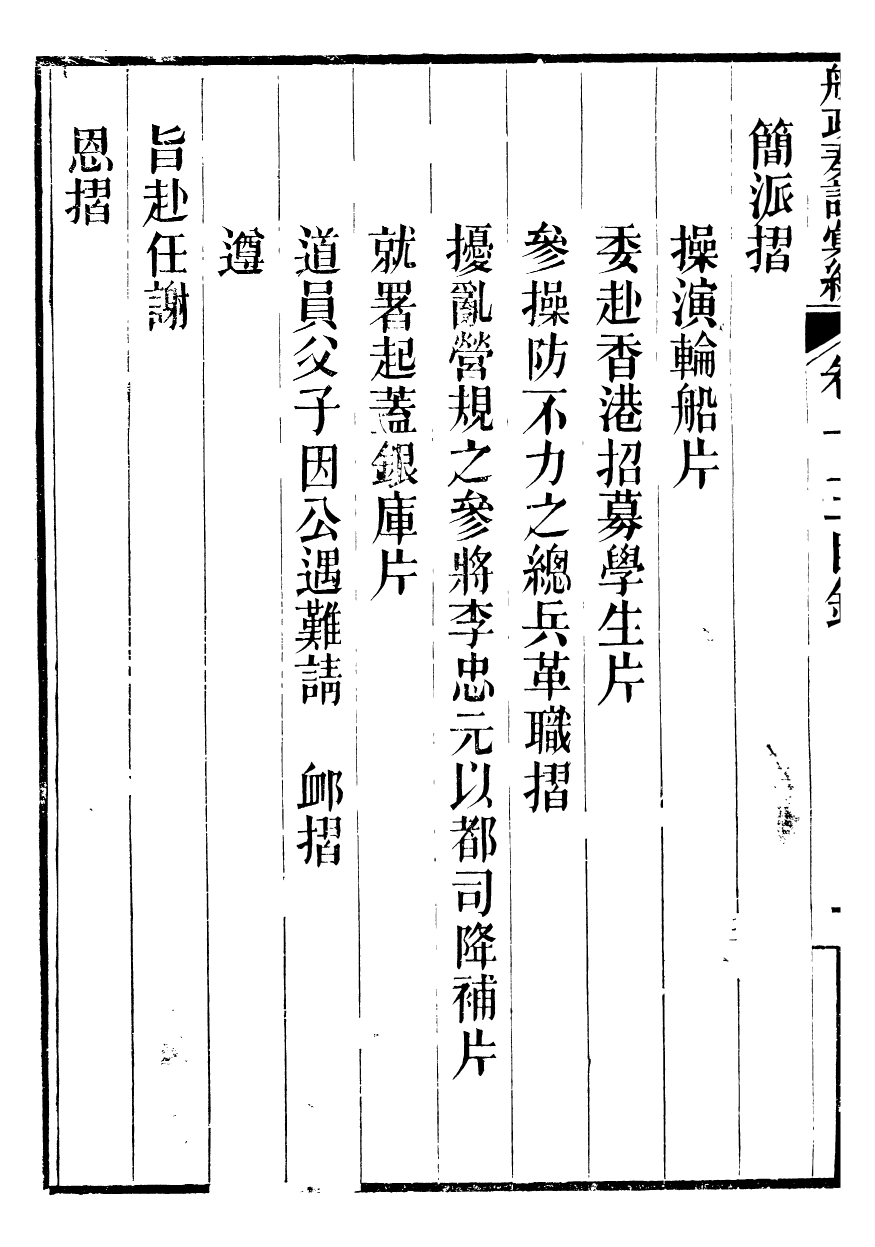 船政奏議彙編 卷十三目錄 一
簡派摺
操演輪船片
委赴香港招募學生片
參操防不力之總兵革職摺
擾亂營規之參將李忠元以都司降補片
就署起蓋銀庫片
道員父子因公遇難請　卹摺
遵
旨赴任謝
恩摺